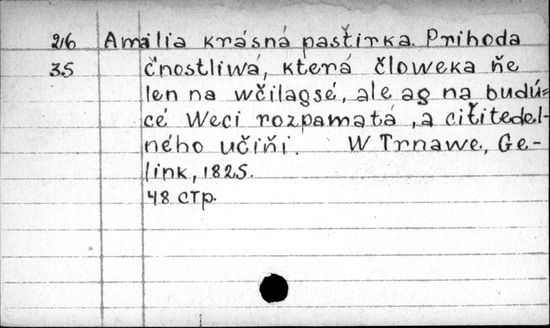 216 Amália krásná pastírka. Prihoda
35 čnostliwá, která človeka ňe
len na wčilagsé, ale ag na budú=
cé weci rozpamatá, a citítedel-
ného učiňí. W Trnawe, Ge-
link, 1825.
48 стр.